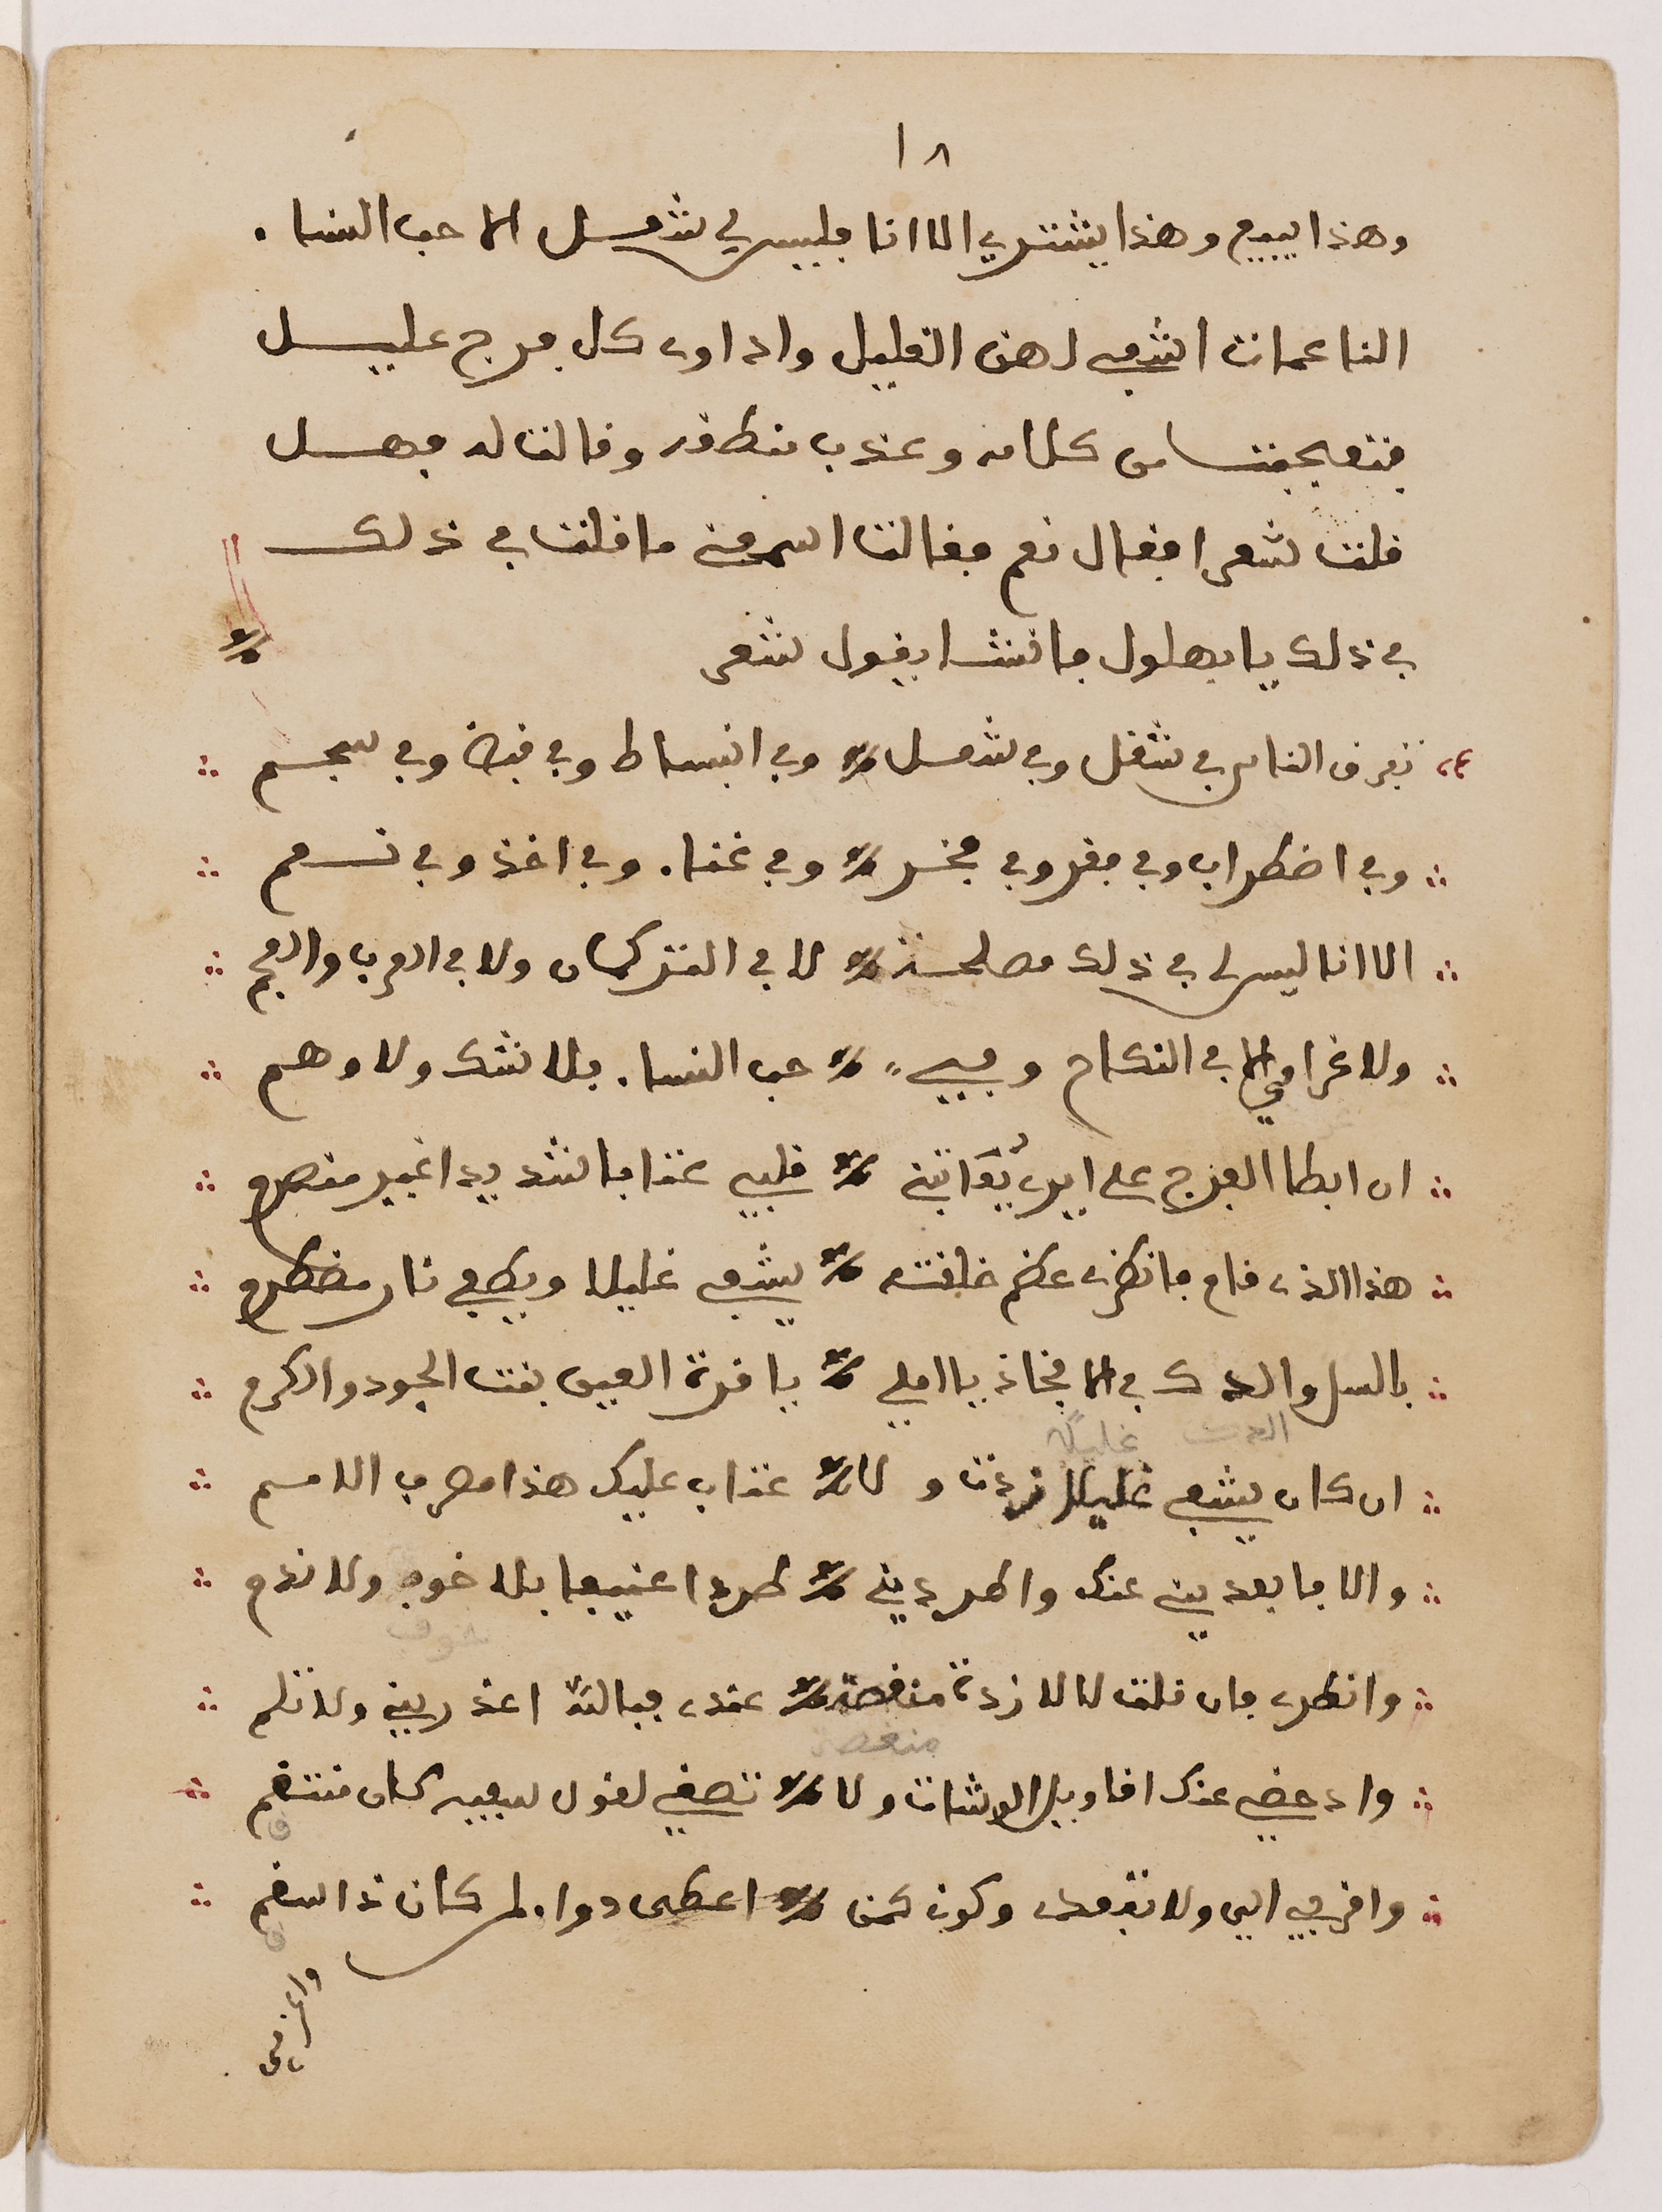 ١٨
وهذا يبيع وهذا يشتري الا انا فليس لي شغل الا حب النساء
الناعمات اشفي لهن الغليل واداوي كل فرج عليل
فتعجبت من كلامه وعذب منطقه وقالت له فهل
قلت شعرا فقال نعم فقالت اسمعني ما قلت في ذلك
في ذلك يا بهلول فانشا يقول شعر
تفرق الناس في شغل وفي شغل وفي انبساط وفي قبض وفي
وفي اضطراب وفي فقر وفي وفي غناء وفي اخذ وفي
الا انا ليس لي في ذلك مصلحة لا في التركمان ولا في العرب والعجم
ولا غرامي الا في النكاح وفي حب النساء بلا شك ولا وهم
ان ابطا الفرج على ايري يعاتبني قلبي عتابا شديدا غير منصرم
هذا الذي قام فانظري عظم خلقته يشفي غليلا ويطفي نار مضطرم
بالسل والدك في الافخاذ يا املي يا قرة العين بنت الجود والكرم
الدك غليلك
ان كان يشفي غليلا زدت ولا عتاب عليك هذا مصرف الامم
والا فابعديني عنك واطرديني طردا عنيفا بلا خوف ولا ندم
خوف
وانظري فان قلت لا لا زدت منغصة عندي فبالله اعذريني ولا تلم
منغصة
وادحضي عنك اقاويل الوشات ولا تصغي لقول سفيه كان منتقم
واقربي الي ولا تبعدي وكوني كمن اعطى دواء لمن كان ذا سقم